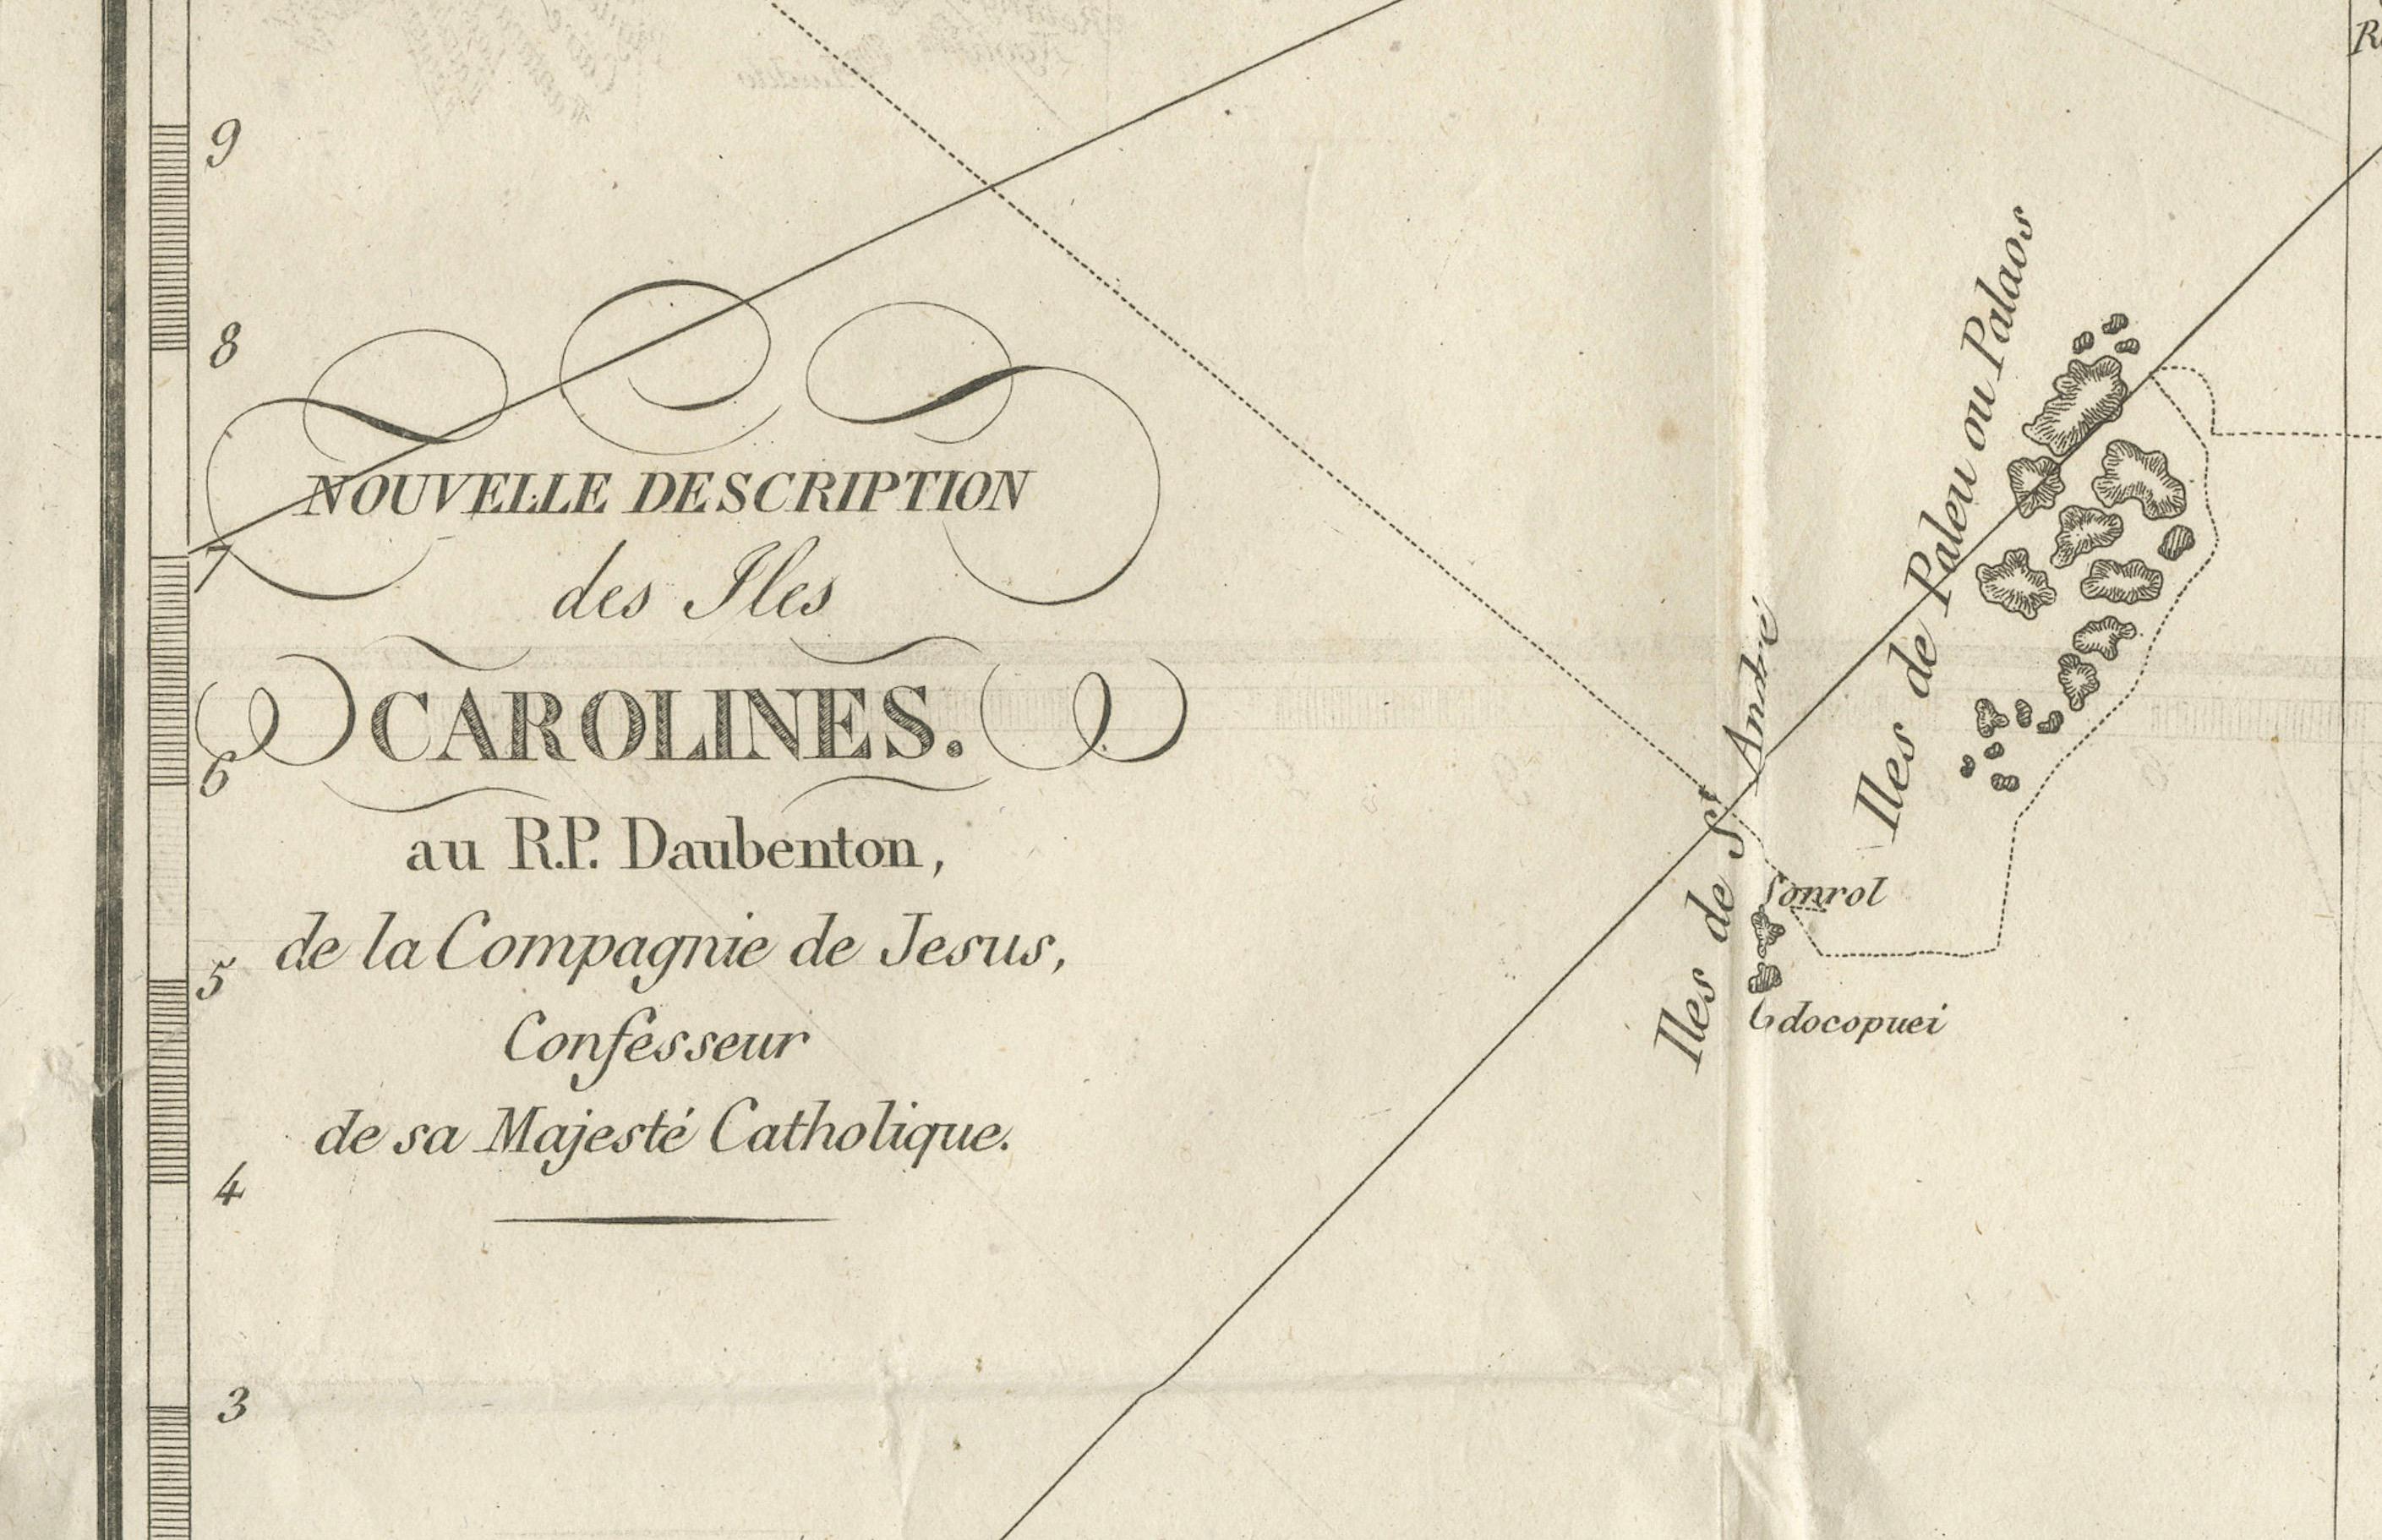 9
8
7
6
5
4
3
NOUVELLE DESCRIPTION
des Iles
CAROLINES.
au R.P. Daubenton,
de la Compagnie de Jesus,
Confesseur
de sa Majesté Catholique.
Iles de Paleu ou Palaos
Iles de St André
Sonrol